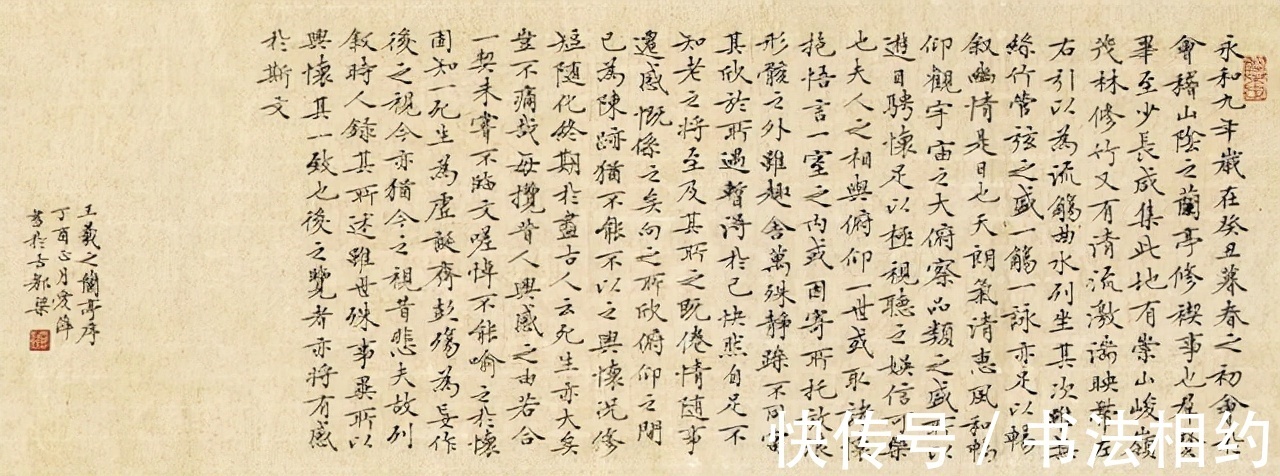 永和九年歲在癸丑暮春之初會于
會稽山陰之蘭亭修禊事也群賢
畢至少長咸集此地有崇山峻嶺
茂林修竹又有清流激湍映帶左
右引以為流觴曲水列坐其次雖無
絲竹管弦之盛一觴一詠亦足以暢
敘幽情是日也天朗氣清惠風和暢
仰觀宇宙之大俯察品類之盛所以
遊目騁懷足以極視聽之娛信可樂
也夫人之相與俯仰一世或取諸懷
抱悟言一室之內或因寄所托放浪
形骸之外雖趣舍萬殊靜躁不同當
其欣於所遇暫得於己快然自足不
知老之將至及其所之既倦情隨事
遷感慨係之矣向之所欣俯仰之間
已為陳跡猶不能不以之興懷況修
短隨化終期於盡古人云死生亦大矣
豈不痛哉每攬昔人興感之由若合
一契未嘗不臨文嗟悼不能喻之於懷
固知一死生為虛誕齊彭殤為妄作
後之視今亦猶今之視昔悲夫故列
敘時人錄其所述雖世殊事異所以
興懷其一致也後之覽者亦將有感
於斯文
王羲之蘭亭序
丁酉正月愛萍
書於古都梁
快传号/书法相约